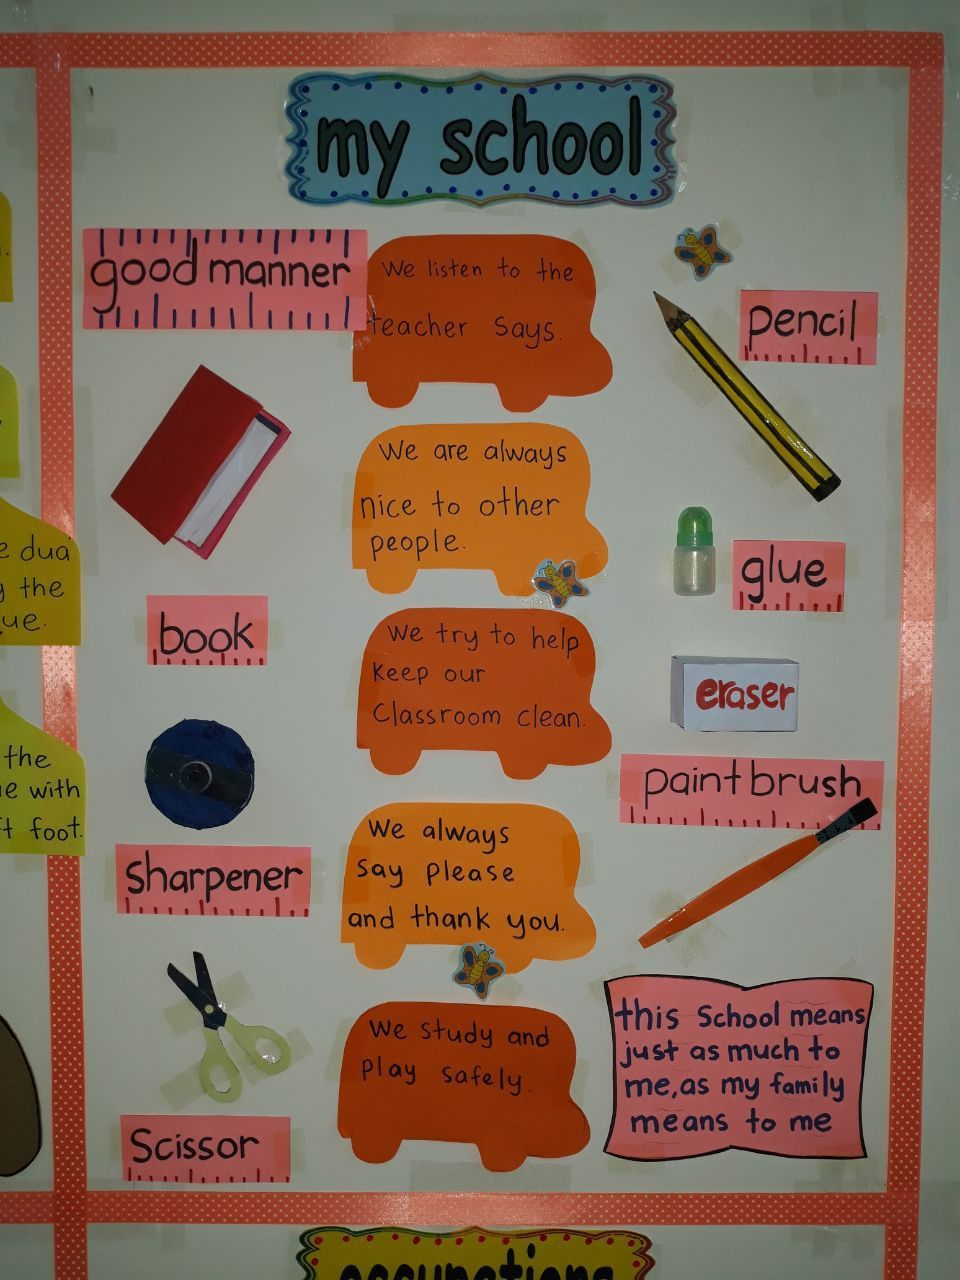 my school
good manner
We listen to the
teacher says.
We are always
nice to other
people.
We try to help
keep our
Classroom clean.
We always
say please
and thank you.
We study and
play safely.
book
sharpener
Scissor
pencil
glue
eraser
paint brush
this School means
just as much to
me, as my family
means to me
e dua
the
ue.
the
e with
foot.
occupations